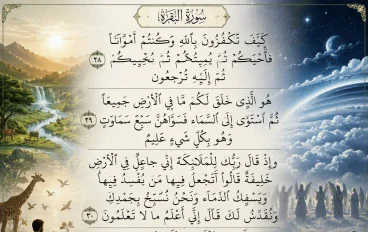 سُورَةُ الْبَقَرَةِ
كَيْفَ تَكْفُرُونَ بِاللَّهِ وَكُنتُمْ أَمْوَاتًا
فَأَحْيَاكُمْ ثُمَّ يُمِيتُكُمْ ثُمَّ يُحْيِيكُمْ
ثُمَّ إِلَيْهِ تُرْجَعُونَ ٢٨
هُوَ الَّذِي خَلَقَ لَكُم مَّا فِي الْأَرْضِ جَمِيعًا
ثُمَّ اسْتَوَىٰ إِلَى السَّمَاءِ فَسَوَّاهُنَّ سَبْعَ سَمَاوَاتٍ
وَهُوَ بِكُلِّ شَيْءٍ عَلِيمٌ ٢٩
وَإِذْ قَالَ رَبُّكَ لِلْمَلَائِكَةِ إِنِّي جَاعِلٌ فِي الْأَرْضِ
خَلِيفَةً قَالُوا أَتَجْعَلُ فِيهَا مَن يُفْسِدُ فِيهَا
وَيَسْفِكُ الدِّمَاءَ وَنَحْنُ نُسَبِّحُ بِحَمْدِكَ
وَنُقَدِّسُ لَكَ قَالَ إِنِّي أَعْلَمُ مَا لَا تَعْلَمُونَ ٣٠